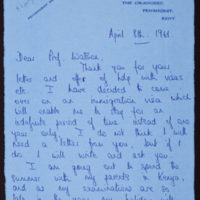 THE ORANGERY,
PENSHURST,
KENT
April 8th. 1961.
Dear Prof. Watson,
Thank you for your
letter and offer of help with visas
etc. I have decided to come
over on an immigration visa which
will enable me to stay for an
indefinite period of time instead of one
year only. I do not think I will
need a letter from you, but if I
do I will write and ask you.
I am going out to spend the
summer with my parents in Kenya,
and as my examinations are so